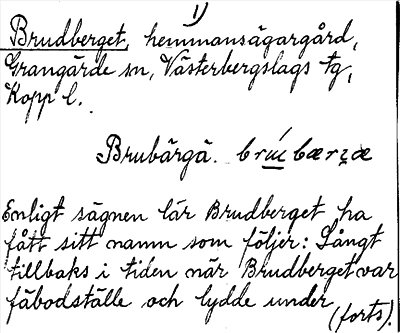 1)
Brudberget, hemmansägargård,
Grangärde sn, Västerbergslags tg,
Kopp l.
Brubärgä. brúbærzæ
Enligt sägnen lär Brudberget ha
fått sitt namn som följer: Långt
tillbaks i tiden när Brudberget var
fäbodställe och lydde under
(forts).